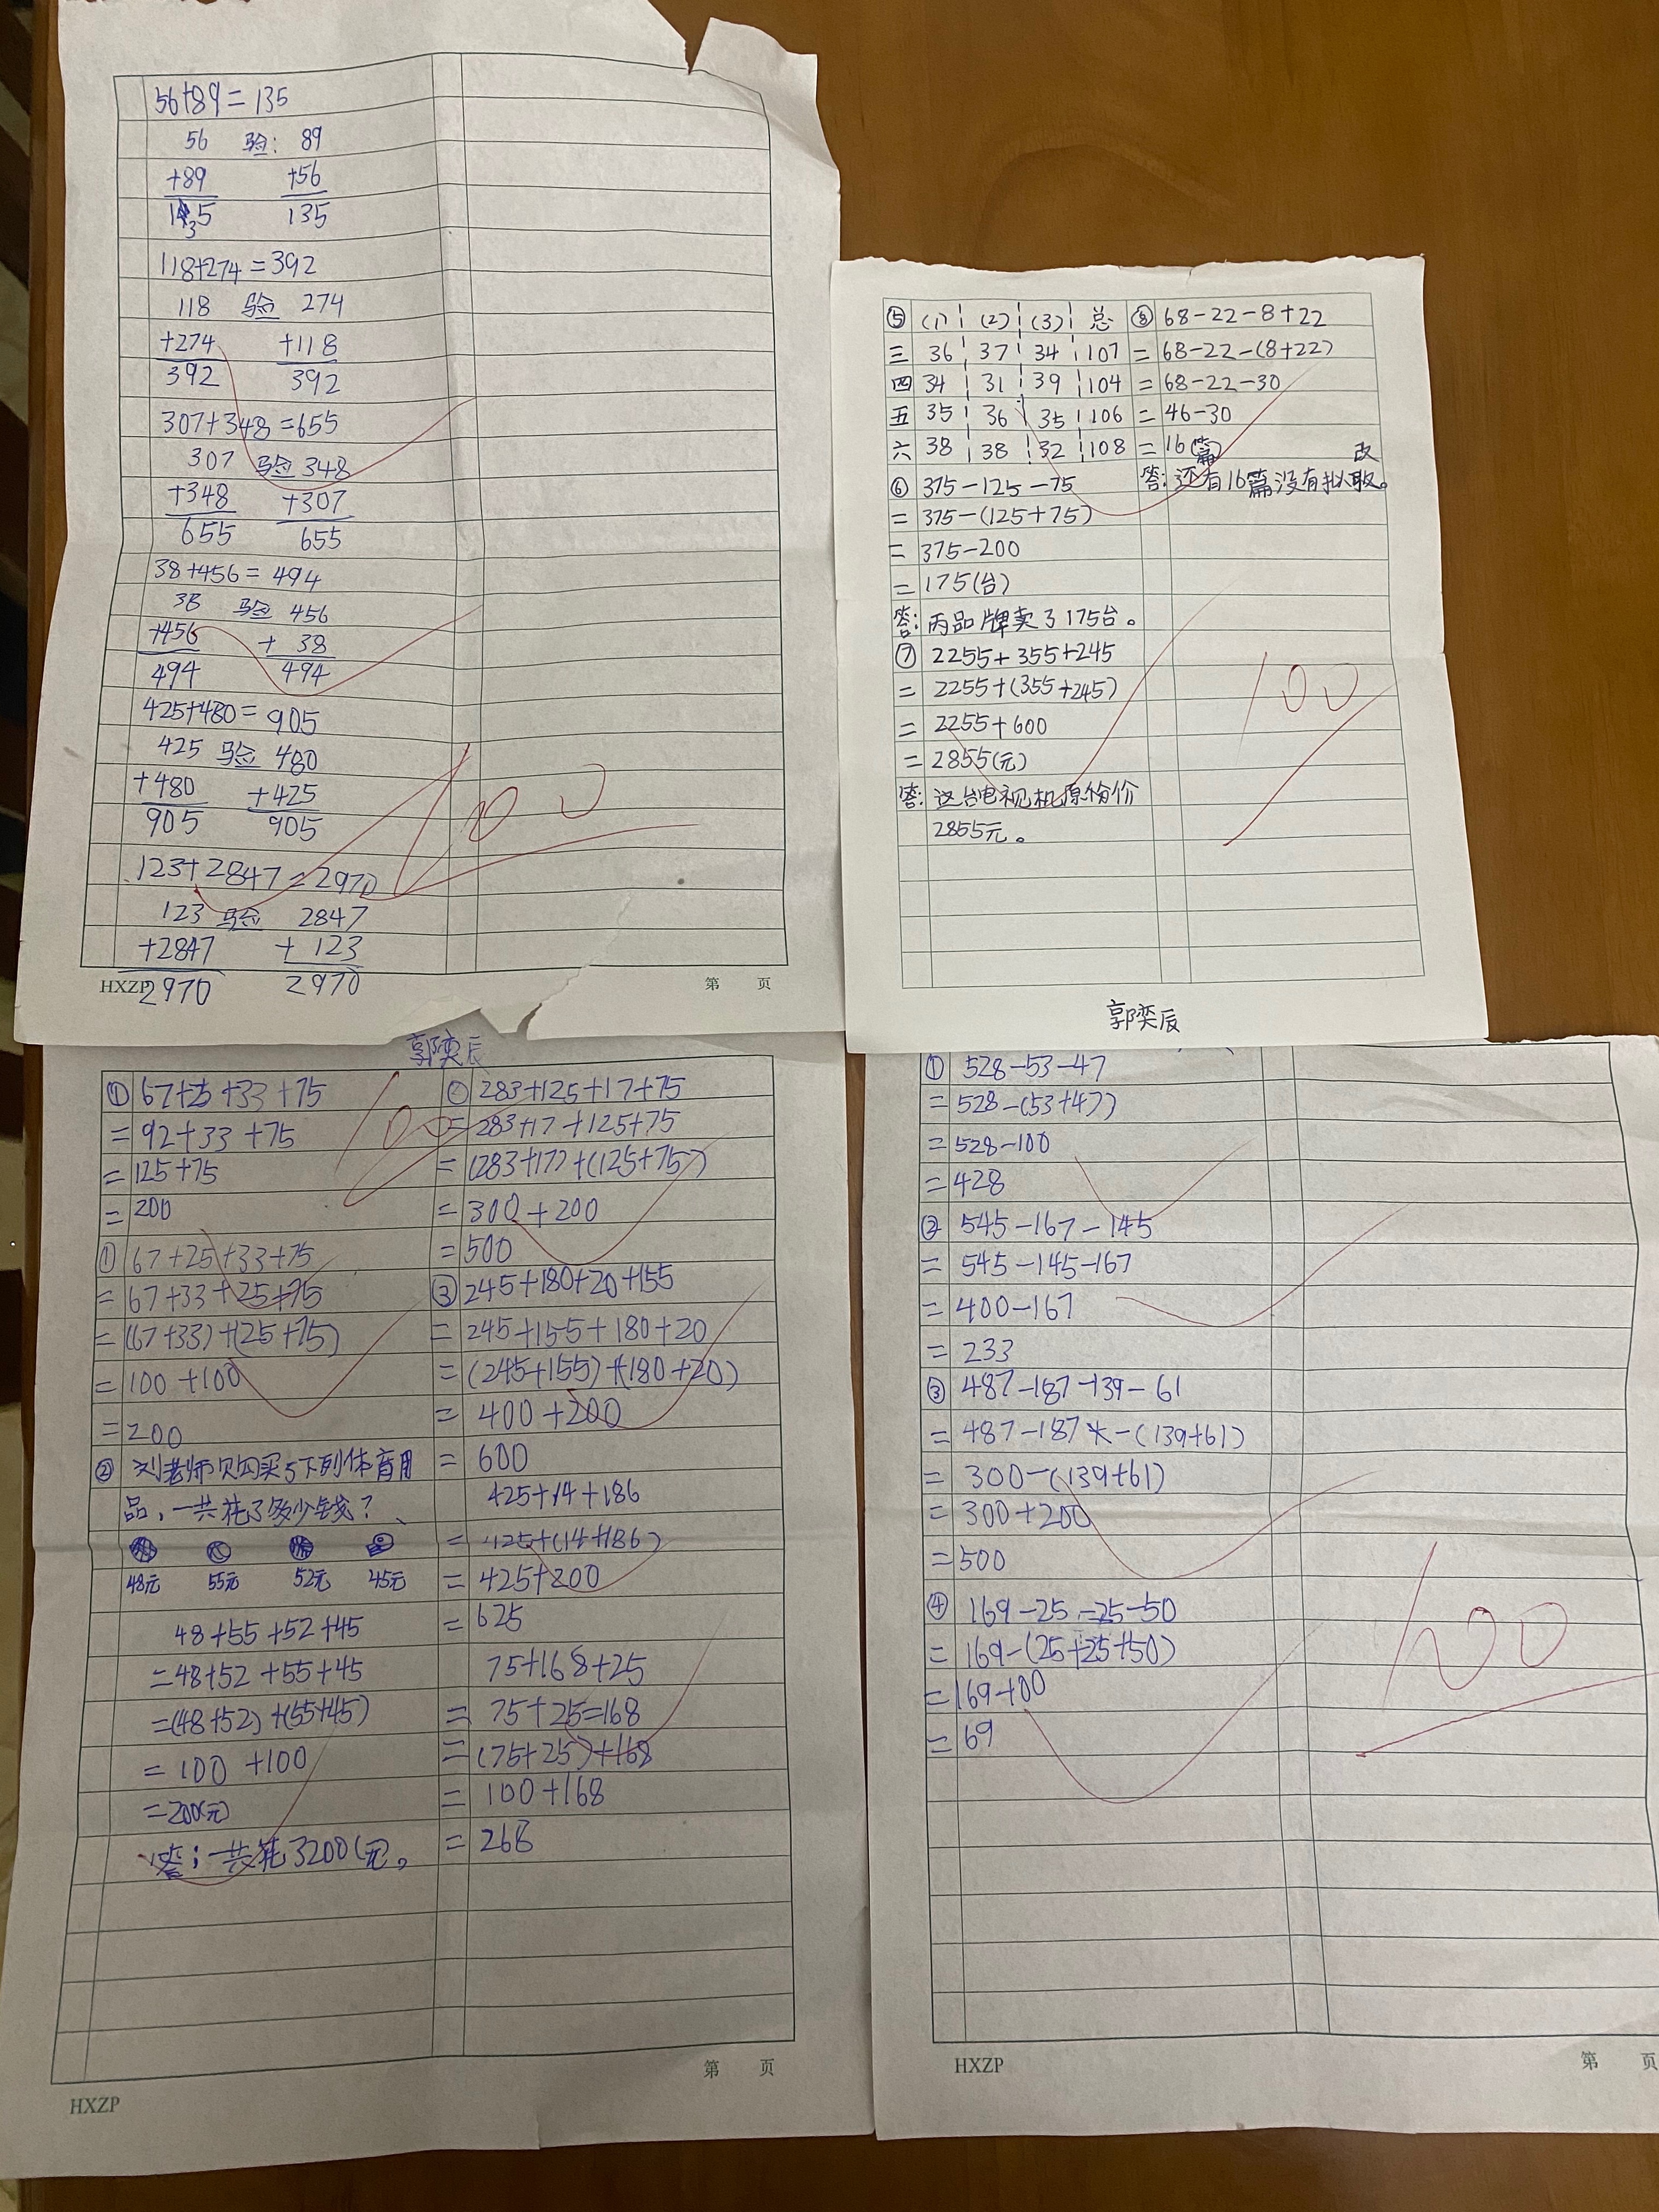 56+89=135
56 验: 89
+89 +56
135 135
118+274=392
118 验 274
+274 +118
392 392
307+348=655
307 验 348
+348 +307
655 655
38+456=494
38 验 456
+456 + 38
494 494
425+480=905
425 验 480
+480 +425
905 905
123+2847=2970
123 验 2847
+2847 + 123
2970 2970
100
HXZP
第 页
⑤ (1) (2) (3) 总
三 36 37 34 107
四 34 31 39 104
五 35 36 35 106
六 38 38 32 108
⑥ 375-125-75
=375-(125+75)
=375-200
=175(台)
答:丙品牌卖了175台。
⑦ 2255+355+245
=2255+(355+245)
=2255+600
=2855(元)
答:这台电视机原价
2855元。
⑧ 68-22-8+22
=68-22-(8+22)
=68-22-30
=46-30
=16(篇)
改
答:还有16篇没有批
100
郭奕辰
郭奕辰
100
① 67+25+33+75
=92+33+75
=125+75
=200
① 67+25+33+75
=67+33+25+75
=(67+33)+(25+75)
=100+100
=200
② 刘老师购买了下列体育用
品,一共花了多少钱?
48元 55元 52元 45元
48+55+52+45
=48+52+55+45
=(48+52)+(55+45)
=100+100
=200(元)
答:一共花了200(元。
② 283+125+17+75
=283+17+125+75
=(283+17)+(125+75)
=300+200
=500
③ 245+180+20+155
=245+155+180+20
=(245+155)+(180+20)
=400+200
=600
425+14+186
=425+(14+186)
=425+200
=625
75+168+25
=75+25=168
=(75+25)+168
=100+168
=268
第 页
HXZP
① 528-53-47
=528-(53+47)
=528-100
=428
② 545-167-145
=545-145-167
=400-167
=233
③ 487-187-139-61
=487-187-(139+61)
=300-(139+61)
=300+200
=500
④ 169-25-25-50
=169-(25+25+50)
=169+00
=69
100
HXZP
第 页